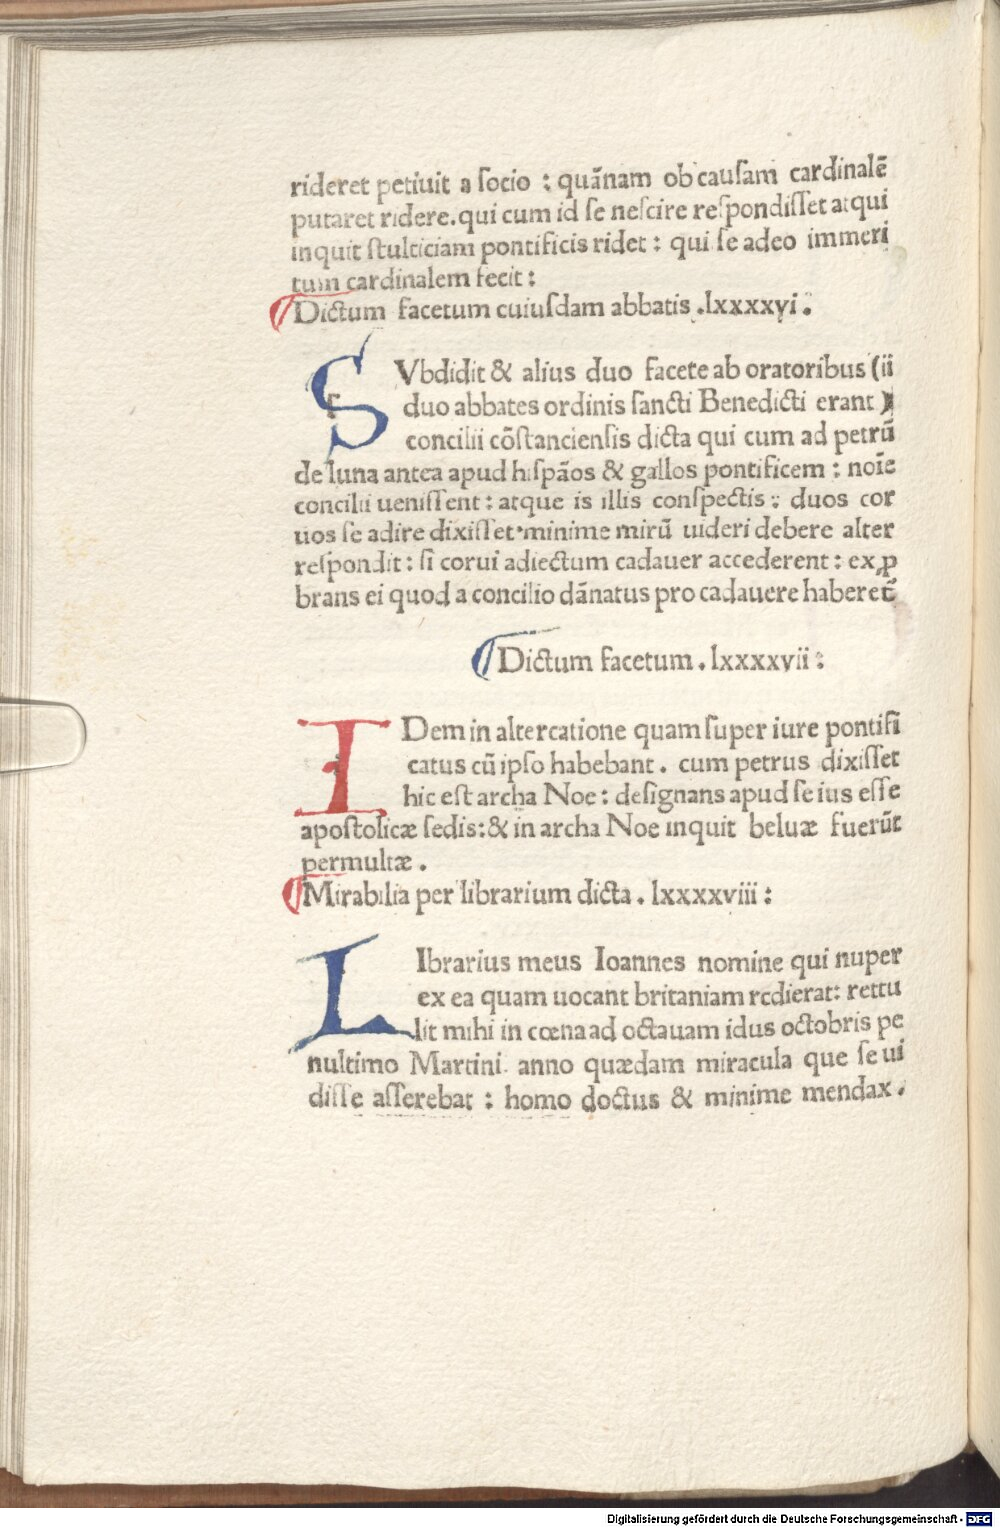 rideret petiuit a socio : quãnam ob causam cardinalẽ
putaret ridere.qui cum id se nescire respondisset atqui
inquit stulticiam pontificis ridet : qui se adeo immeri
tum cardinalem fecit :
Dictum facetum cuiusdam abbatis .lxxxxvi.
SVbdidit & alius duo facete ab oratoribus (ii
duo abbates ordinis sancti Benedicti erant )
concilii cõstanciensis dicta qui cum ad petrũ
de luna antea apud hispãos & gallos pontificem : noĩe
concilii uenissent : atque is illis conspectis : duos cor
uos se adire dixisset·minime mirũ uideri debere alter
respondit : si corui adiectum cadauer accederent : exꝓ
brans ei quod a concilio dãnatus pro cadauere haberet̃
Dictum facetum . lxxxxvii :
IDem in altercatione quam super iure pontifi
catus cũ ipso habebant . cum petrus dixisset
hic est archa Noe : designans apud se ius esse
apostolicæ sedis : & in archa Noe inquit beluæ fuerũt
permultæ .
Mirabilia per librarium dicta . lxxxxviii :
LIbrarius meus Ioannes nomine qui nuper
ex ea quam uocant britaniam redierat : rettu
lit mihi in cœna ad octauam idus octobris pe
nultimo Martini. anno quædam miracula que se ui
disse asserebat : homo doctus & minime mendax .
Digitalisierung gefördert durch die Deutsche Forschungsgemeinschaft - DFG